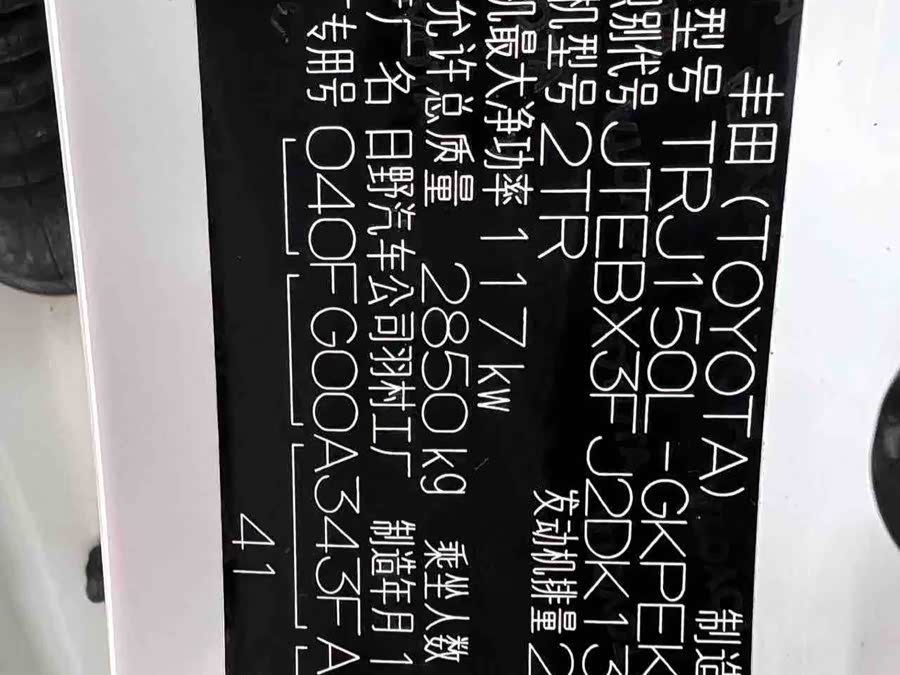 丰田(TOYOTA) 制造
型号 TRJ150L-GKPEK
识别代号 JTEBX3FJ2DK13
机型号 2TR 发动机排量 2
机最大净功率 117kw
允许总质量 2850kg 乘坐人数
厂名 日野汽车公司羽村工厂 制造年月 1
专用号 040FG00A343FA
41